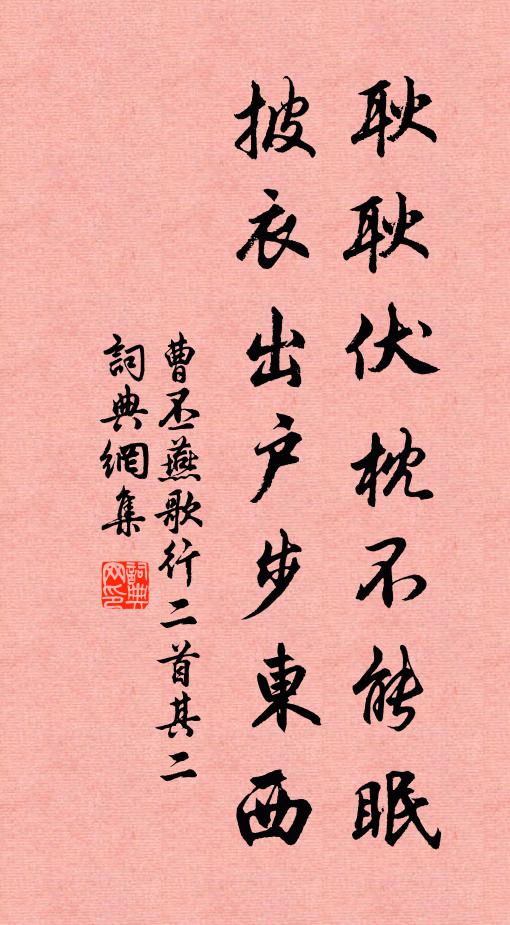 耿耿伏枕不能眠
披衣出户步東西
曹丕燕歌行二首其二
詞典網集
詞典網印